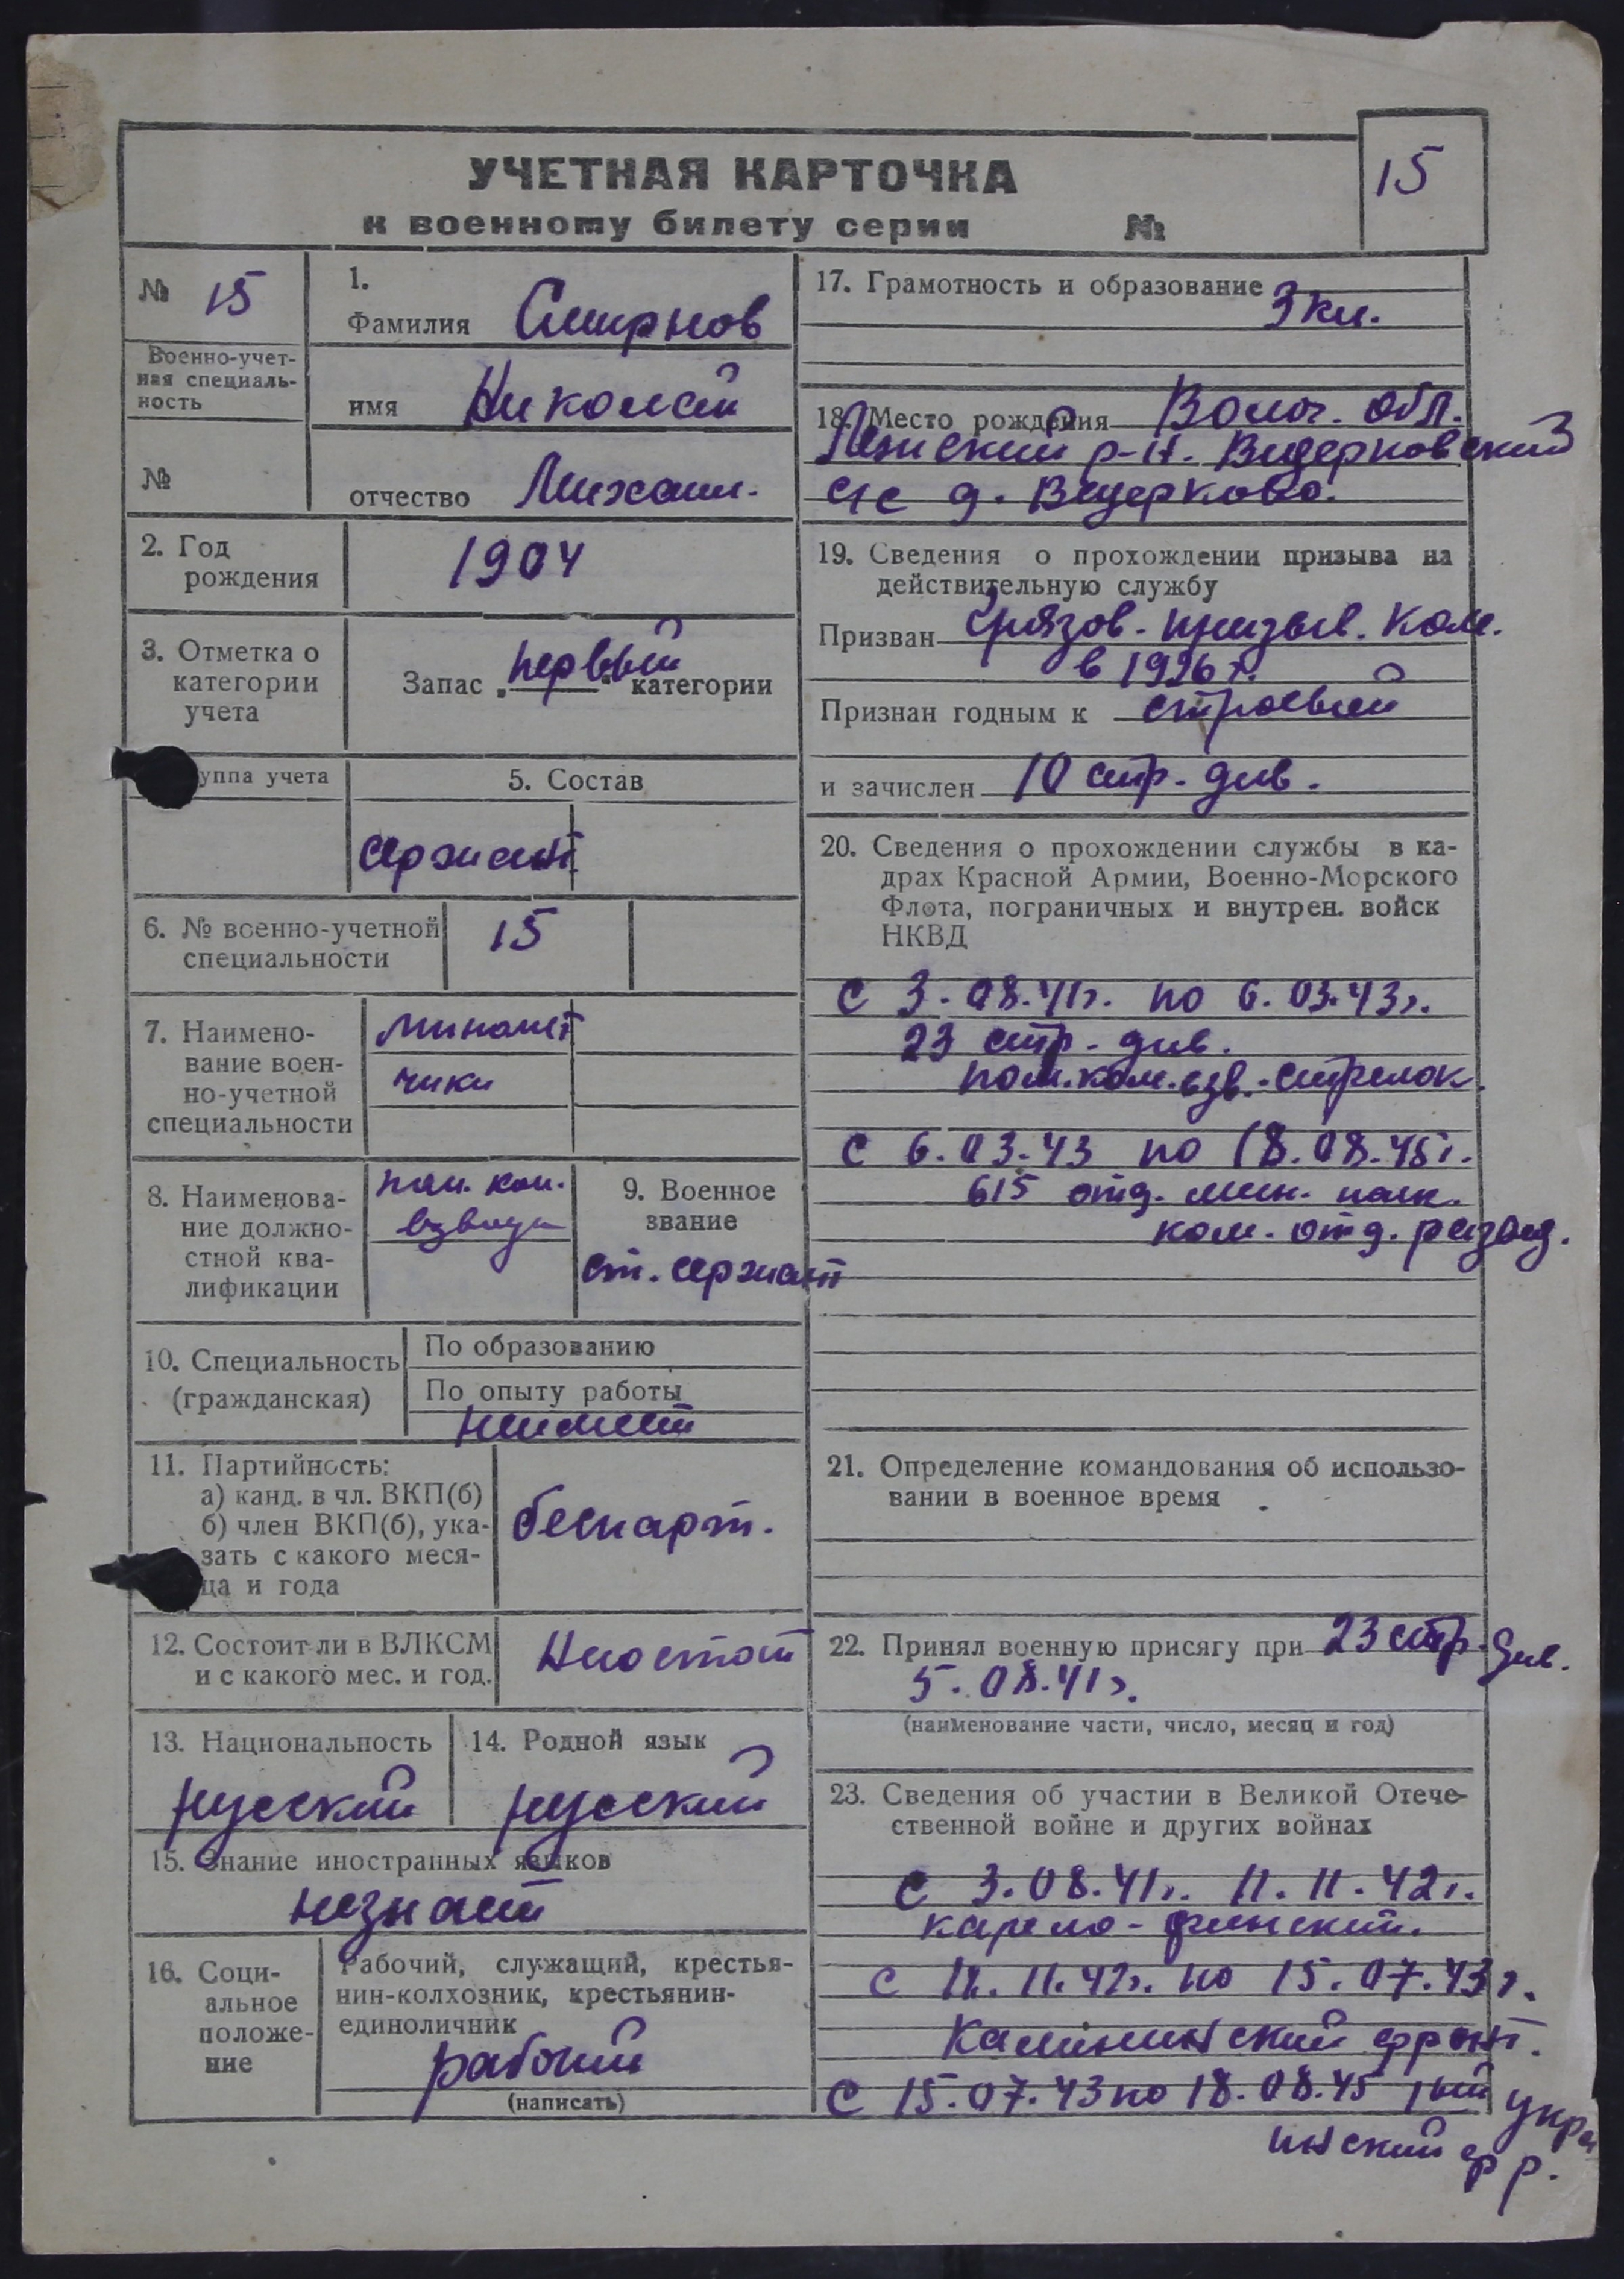 УЧЕТНАЯ КАРТОЧКА
к военному билету серии №
15
№ 15
Военно-учет-
ная специаль-
ность
№
1.
Фамилия Смирнов
имя Николай
отчество Михаил.
2. Год
рождения
1904
3. Отметка о
категории
учета
Запас „первый“ категории
уппа учета
5. Состав
сержант
6. № военно-учетной
специальности
15
7. Наимено-
вание воен-
но-учетной
специальности
миномет
чики
8. Наименова-
ние должно-
стной ква-
лификации
пом. ком.
взвода
9. Военное
звание
ст. сержант
10. Специальность
(гражданская)
По образованию
По опыту работы
неимеет
11. Партийность:
а) канд. в чл. ВКП(б)
б) член ВКП(б), ука-
зать с какого меся-
ца и года
беспарт.
12. Состоит ли в ВЛКСМ
и с какого мес. и год.
13. Национальность
русский
14. Родной язык
русский
15. Знание иностранных языков
незнает
16. Соци-
альное
положе-
ние
Рабочий, служащий, крестья-
нин-колхозник, крестьянин-
единоличник
рабочий
(написать)
17. Грамотность и образование
3 кл.
18. Место рождения Волог. обл.
р-н.
с/с д.
19. Сведения о прохождении призыва на
действительную службу
Призван Грязов. призыв. ком.
в 1926 г.
Признан годным к строевый
и зачислен 10 стр. див.
20. Сведения о прохождении службы в ка-
драх Красной Армии, Военно-Морского
Флота, пограничных и внутрен. войск
НКВД
С 3.08.41г. по 6.03.43г.
23 стр. див.
пом. ком. взв. стрелок.
С 6.03.43 по 18.08.45г.
615 отд. мин. полк.
ком. отд. развед.
21. Определение командования об использо-
вании в военное время
22. Принял военную присягу при 23 стр. див.
5.08.41г.
(наименование части, число, месяц и год)
23. Сведения об участии в Великой Отече-
ственной войне и других войнах
С 3.08.41г. 11.11.42г.
карело-финский.
С 11.11.42г. по 15.07.43г.
Калининский фронт.
С 15.07.43 по 18.08.45 1ый укра
инский фр.